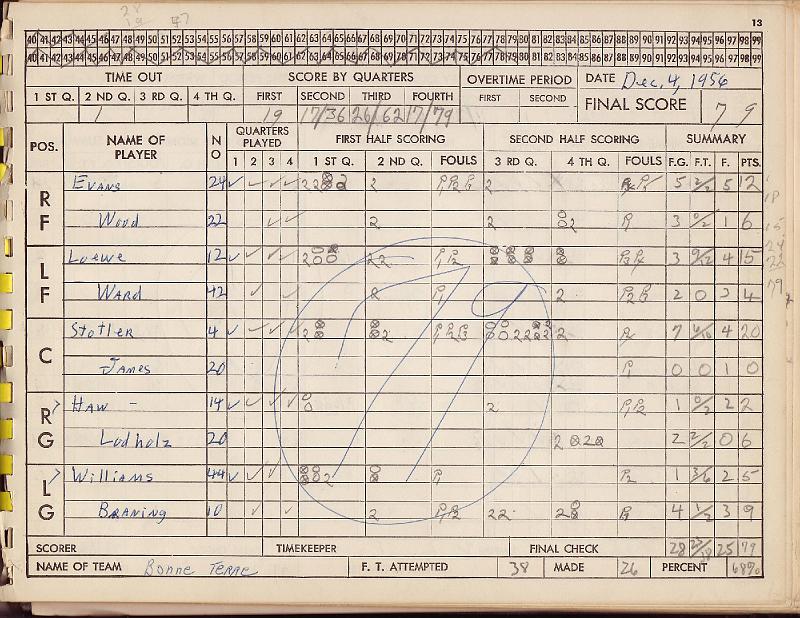 13
40 41 42 43 44 45 46 47 48 49 50 51 52 53 54 55 56 57 58 59 60 61 62 63 64 65 66 67 68 69 70 71 72 73 74 75 76 77 78 79 80 81 82 83 84 85 86 87 88 89 90 91 92 93 94 95 96 97 98 99
40 41 42 43 44 45 46 47 48 49 50 51 52 53 54 55 56 57 58 59 60 61 62 63 64 65 66 67 68 69 70 71 72 73 74 75 76 77 78 79 80 81 82 83 84 85 86 87 88 89 90 91 92 93 94 95 96 97 98 99
TIME OUT SCORE BY QUARTERS OVERTIME PERIOD DATE Dec. 4, 1956
1 ST Q. 2 ND Q. 3 RD Q. 4 TH Q. FIRST SECOND THIRD FOURTH FIRST SECOND FINAL SCORE 79
1 19 17/36 26/62 17/79
POS. NAME OF PLAYER NO QUARTERS PLAYED FIRST HALF SCORING SECOND HALF SCORING SUMMARY
1 2 3 4 1 ST Q. 2 ND Q. FOULS 3 RD Q. 4 TH Q. FOULS F.G. F.T. F. PTS.
RF Evans 24 2 2 2 2 2 5 2/2 5 12
Wood 22 2 2 2 3 0/2 1 6
LF Loewe 12 2 2 2 3 9/12 4 15
Ward 42 2 2 2 0 3 4
C Stotler 4 2 2 2 7 6/10 4 20
James 20 0 0 1 0
RG Haw - 14 2 1 0/2 2 2
Lodholz 20 2 2 2 2/2 0 6
LG Williams 44 2 1 3/6 2 5
Braning 10 2 2 2 2 4 1/2 3 9
79
SCORER TIMEKEEPER FINAL CHECK 28 25 79
NAME OF TEAM Bonne Terre F. T. ATTEMPTED 38 MADE 26 PERCENT 68%